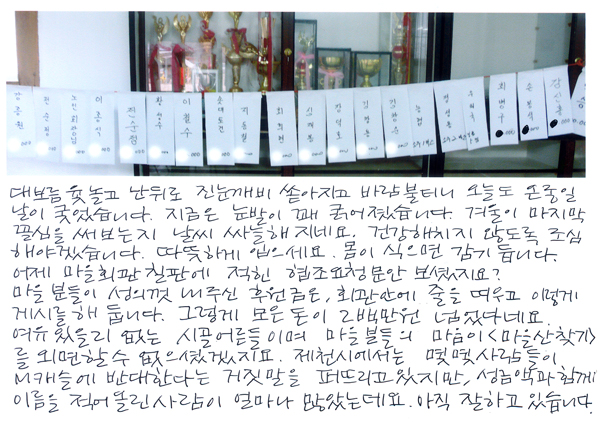 강종원
전순원
노인회장님
이종식
전순점
황성수
이철수
송대호건
최동철
최희연
신계동
장덕호
김영동
김창수
농협
정영동
우체국
최병수
손봉석
대보름 윷놀고 난뒤로 진눈깨비 쏟아지고 바람불더니 오늘도 온종일
날이 궂었습니다. 지금은 눈발이 꽤 굵어졌습니다. 겨울이 마지막
끝심을 써보는지 날씨 싸늘해지네요. 건강해치지 않도록 조심
해야겠습니다. 따뜻하게 입으세요. 몸이 식으면 감기 듭니다.
어제 마을회관 칠판에 적힌 협조요청문안 보셨지요?
마을 분들이 성의껏 내주신 후원금은, 회관안에 줄을 띄우고 이렇게
게시를 해 둡니다. 그렇게 모은 돈이 2백만원 넘었다네요.
여유있을리 없는 시골어른들이며 마을분들의 마음이 <마을산찾기>
를 외면할 수 없으셨겠지요. 제천시에서는 몇몇사람들이
M캐슬에 반대한다는 거짓말을 퍼뜨리고 있지만, 성금액과 함께
이름을 적어 올린 사람이 얼마나 많았는데요. 아직 잘하고 있습니다.